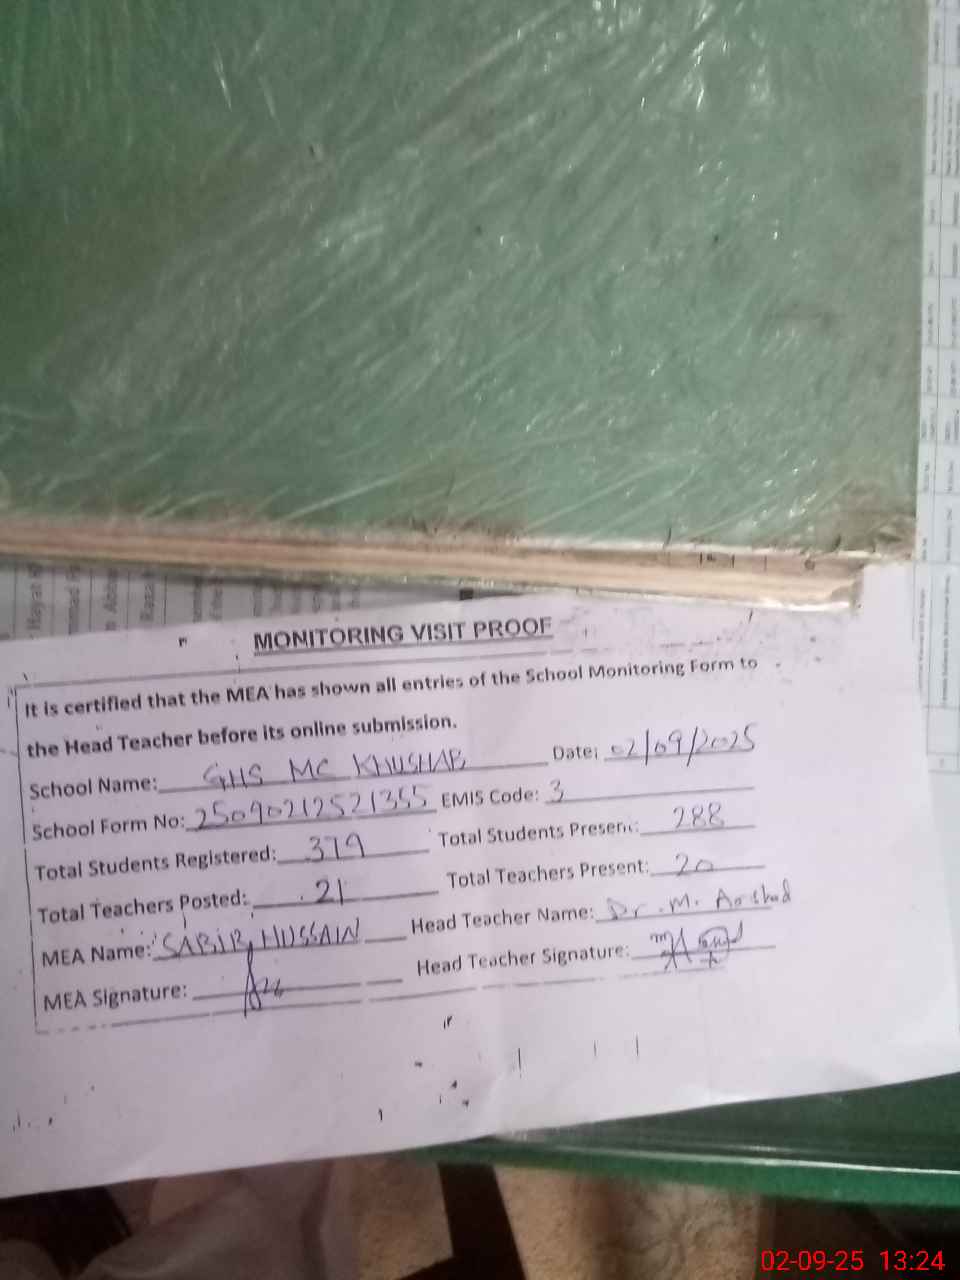 MONITORING VISIT PROOF
It is certified that the MEA has shown all entries of the School Monitoring Form to
the Head Teacher before its online submission.
School Name: GHS MC KHUSHAB Date: 02/09/2025
School Form No: 25090212521355 EMIS Code: 3
Total Students Registered: 379 Total Students Present: 288
Total Teachers Posted: 21 Total Teachers Present: 20
MEA Name: SABIR HUSSAIN Head Teacher Name: Dr. M. Arshad
MEA Signature: Head Teacher Signature:
02-09-25 13:24